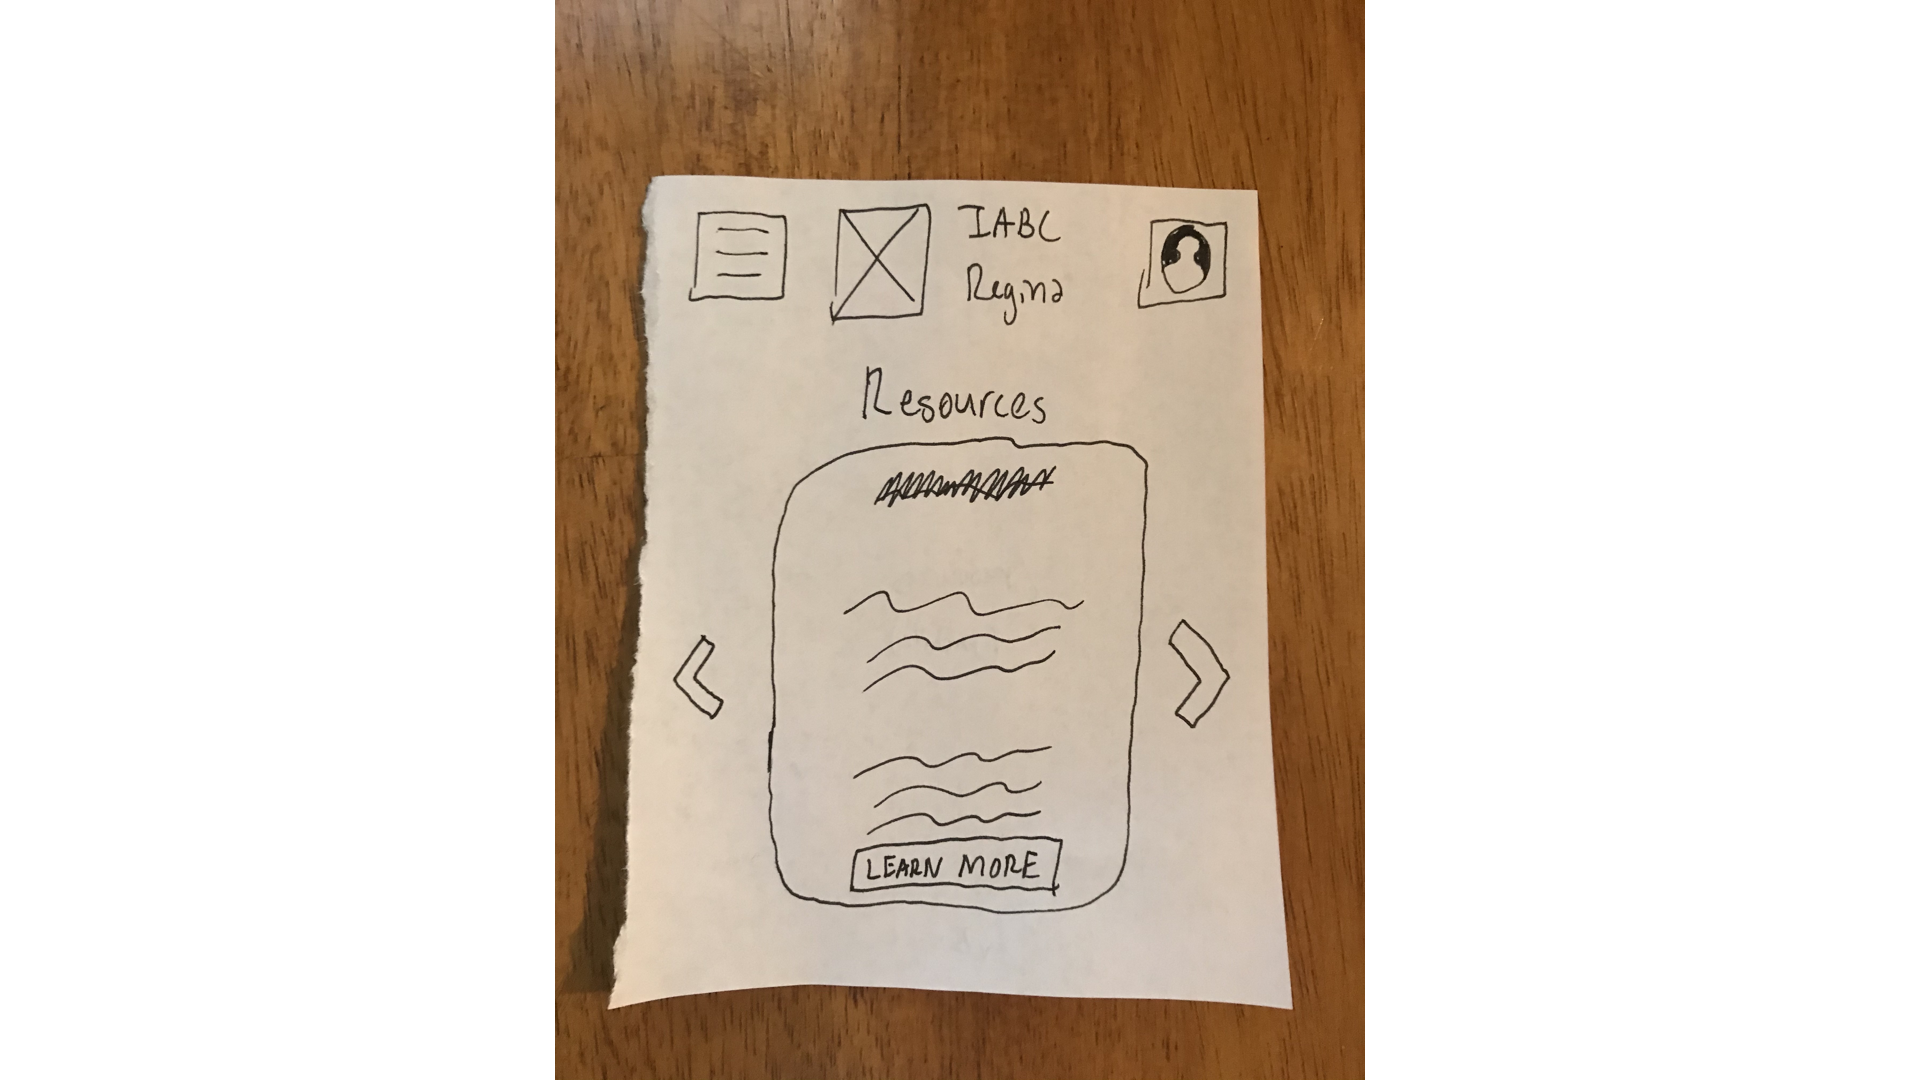 IABC
Regina
Resources
LEARN MORE